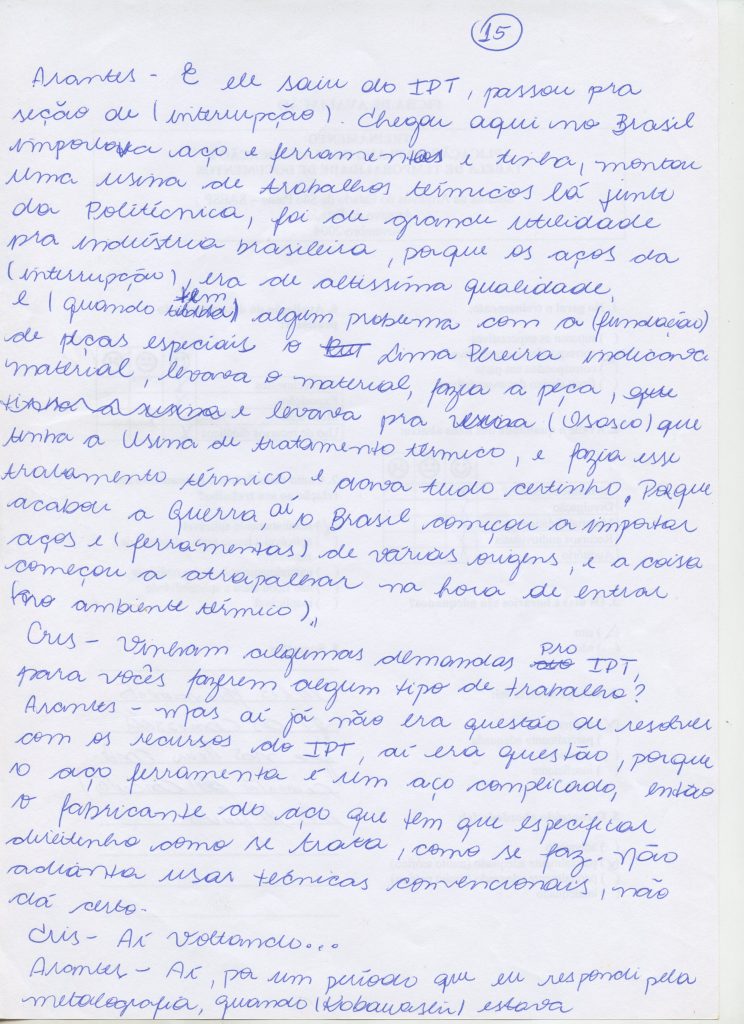 15
Arantes - E ele saiu do IPT, passou pra
seção de (interrupção). Chegou aqui no Brasil
importava aço e ferramentas e tinha, montou
uma usina de trabalhos térmicos lá junto
da Politécnica, foi de grande utilidade
pra indústria brasileira, porque os aços da
(interrupção), era de altíssima qualidade,
e (quando tem) algum problema com a (fundação)
de peças especiais o Lima Pereira indicava
material, levava o material, fazia a peça, que
tinha a usina e levava pra (Osasco) que
tinha a Usina de tratamento térmico, e fazia esse
tratamento térmico e dava tudo certinho. Porque
acabou a Guerra, aí o Brasil começou a importar
aços e (ferramentas) de várias origens, e a coisa
começou a atrapalhar na hora de entrar
(no ambiente térmico).
Cris - Vinham algumas demandas pro IPT,
para vocês fazerem algum tipo de trabalho?
Arantes - Mas aí já não era questão de resolver
com os recursos do IPT, aí era questão, porque
o aço ferramenta é um aço complicado, então
o fabricante do aço que tem que especificar
direitinho como se trata, como se faz. Não
adianta usar técnicas convencionais, não
dá certo.
Cris - Aí voltando...
Arantes - Aí, por um período que eu respondi pela
metalografia, quando estava